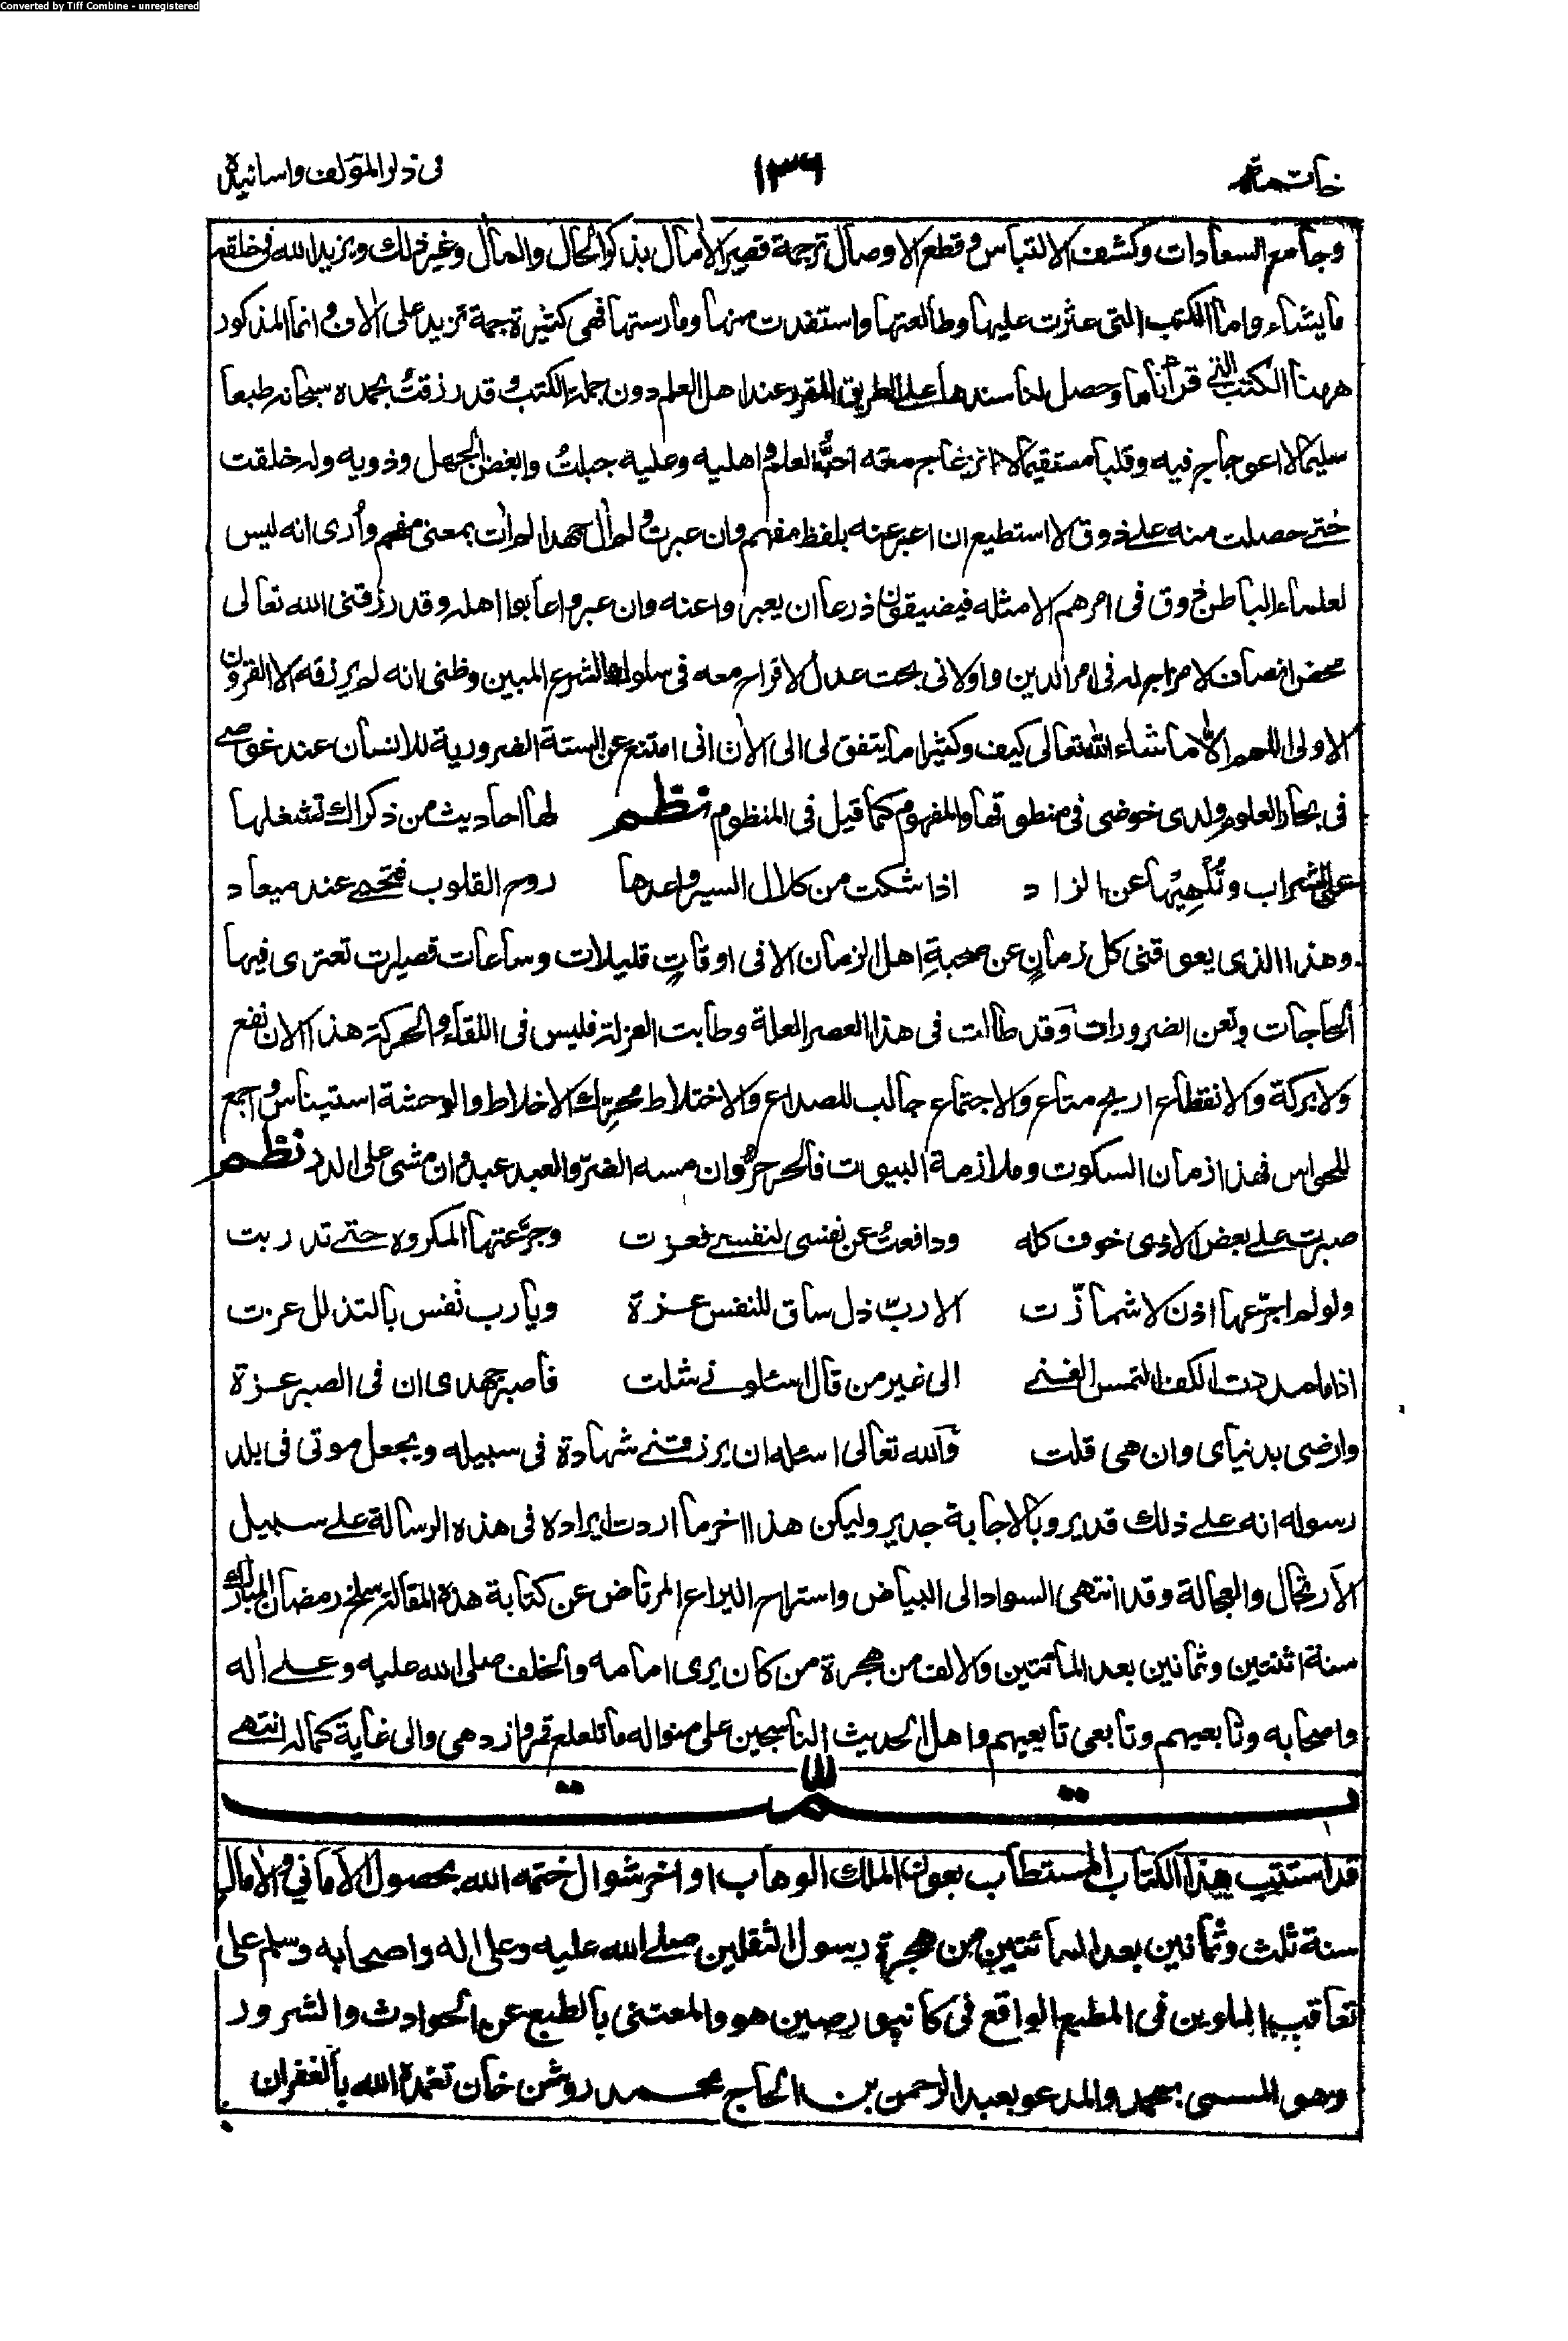 Converted by Tiff Combine - unregistered
خاتمة ١٣٦ فى ذكر المؤلف واسانيده
وجامع السعادات وكشف الالتباس وقطع الاوصال ترجمة قصير الآمال بذكر الحال والمآل وغير ذلك ويزيد الله فى خلقه
ما يشاء واما الكتب التى عثرت عليها وطالعتها واستفدت منها ومارستها فهى كثيرة جمة تزيد على الاف وانما المذكور
ههنا الكتب التى قرأناها وحصل لنا سندها على الطريق المقرر عند اهل العلم دون جملة الكتب وقد رزقت بحمده سبحانه طبعا
سليما لا اعوجاج فيه وقلبا مستقيما لا انزعاج معه احب العلم واهليه وعليه جبلت وابغض الجهل وذويه وله خلقت
حتى حصلت منه على ذوق لا استطيع ان اعبر عنه بلفظ مفهم وان عبرت لم ال جهدا لم ات بمعنى مفهم وأرى انه ليس
لعلماء الباطن ذوق فى امرهم الا مثله فيضيقون ذرعا ان يعبروا عنه وان عبروا عابوا اهله وقد رزقنى الله تعالى
محض انصاف لا مراج له فى امر الدين واولانى بحت عدل لا قراح معه فى سلوك الشرع المبين وظنى انه لم يرزقه الا القرون
الاولى اللهم الا ما شاء الله تعالى كيف وكثيرا ما يتفق لى الى الان انى امتنع عن الستة الضرورية للانسان عند غوصى
فى بحار العلوم ولدى خوضى فى منطوقها والمفهوم كما قيل فى المنظوم نظم لها احاديث من ذكراك تشغلها
على الشراب وتلهيها عن الزاد اذا شكت من كلال السير واعدها روح القلوب فتحيى عند ميعاد
وهذا الذى يعوقنى كل زمان عن صحبة اهل الزمان الا فى اوقات قليلات وساعات قصيرات تعترى فيها
الحاجات وتعن الضرورات وقد طالت فى هذا العصر العلة وطابت العزلة فليس فى اللقاء والحركة هذا الان نفع
ولا بركة والانقطاع اربح متاع والاجتماع جالب للصداع والاختلاط محرك الاخلاط والوحشة استيناس واجمع
للحواس فهذا زمان السكوت وملازمة البيوت فالحر حر وان مسه الضر والعبد عبد وان مشى على الدر نظم
صبرت على بعض الاذى خوف كله ودافعت عن نفسى لنفسى فعزت وجرعتها المكروه حتى تدربت
ولو لم اجرعها اذن لاشمأزت الا رب ذل ساق للنفس عزة ويا رب نفس بالتذلل عزت
اذا ما مددت الكف التمس الغنى الى غير من قال اسئلونى شلت فاصبر جهدى ان فى الصبر عزة
وارضى بدنياى وان هى قلت والله تعالى اسئله ان يرزقنى شهادة فى سبيله ويجعل موتى فى بلد
رسوله انه على ذلك قدير وبالاجابة جدير وليكن هذا اخر ما اردت ايراده فى هذه الرسالة على سبيل
الارتجال والعجالة وقد انتهى السواد الى البياض واستراح اليراع المرتاض عن كتابة هذه المقالة سلخ رمضان المبارك
سنة اثنتين وثمانين بعد المائتين والالف من هجرة من كان يرى امامه والخلف صلى الله عليه وعلى اله
واصحابه وتابعيهم وتابعى تابعيهم واهل الحديث الناسجين على منواله ما تلعلع قمر وازدهى والى غاية كماله انتهى
تمت
قد استتب هذا الكتاب المستطاب بعون الملك الوهاب اواخر شوال ختمه الله بحصول الامانى والامال
سنة ثلث وثمانين بعد المائتين من هجرة رسول الثقلين صلى الله عليه وعلى اله واصحابه وسلم على
تعاقب الملوين فى المطبع الواقع فى كانپور صين هو والمعتنى بالطبع عن الحوادث والشرور
وهو المسمى بمحمد والمدعو بعبد الرحمن بن الحاج محمد روشن خان تغمده الله بالغفران